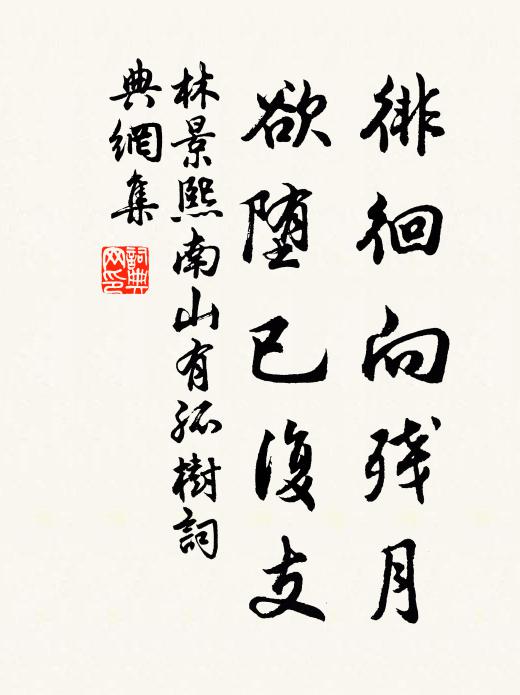 徘徊向残月
欲堕已復支
林景熙南山有孤樹詞
典網集
詞典網印